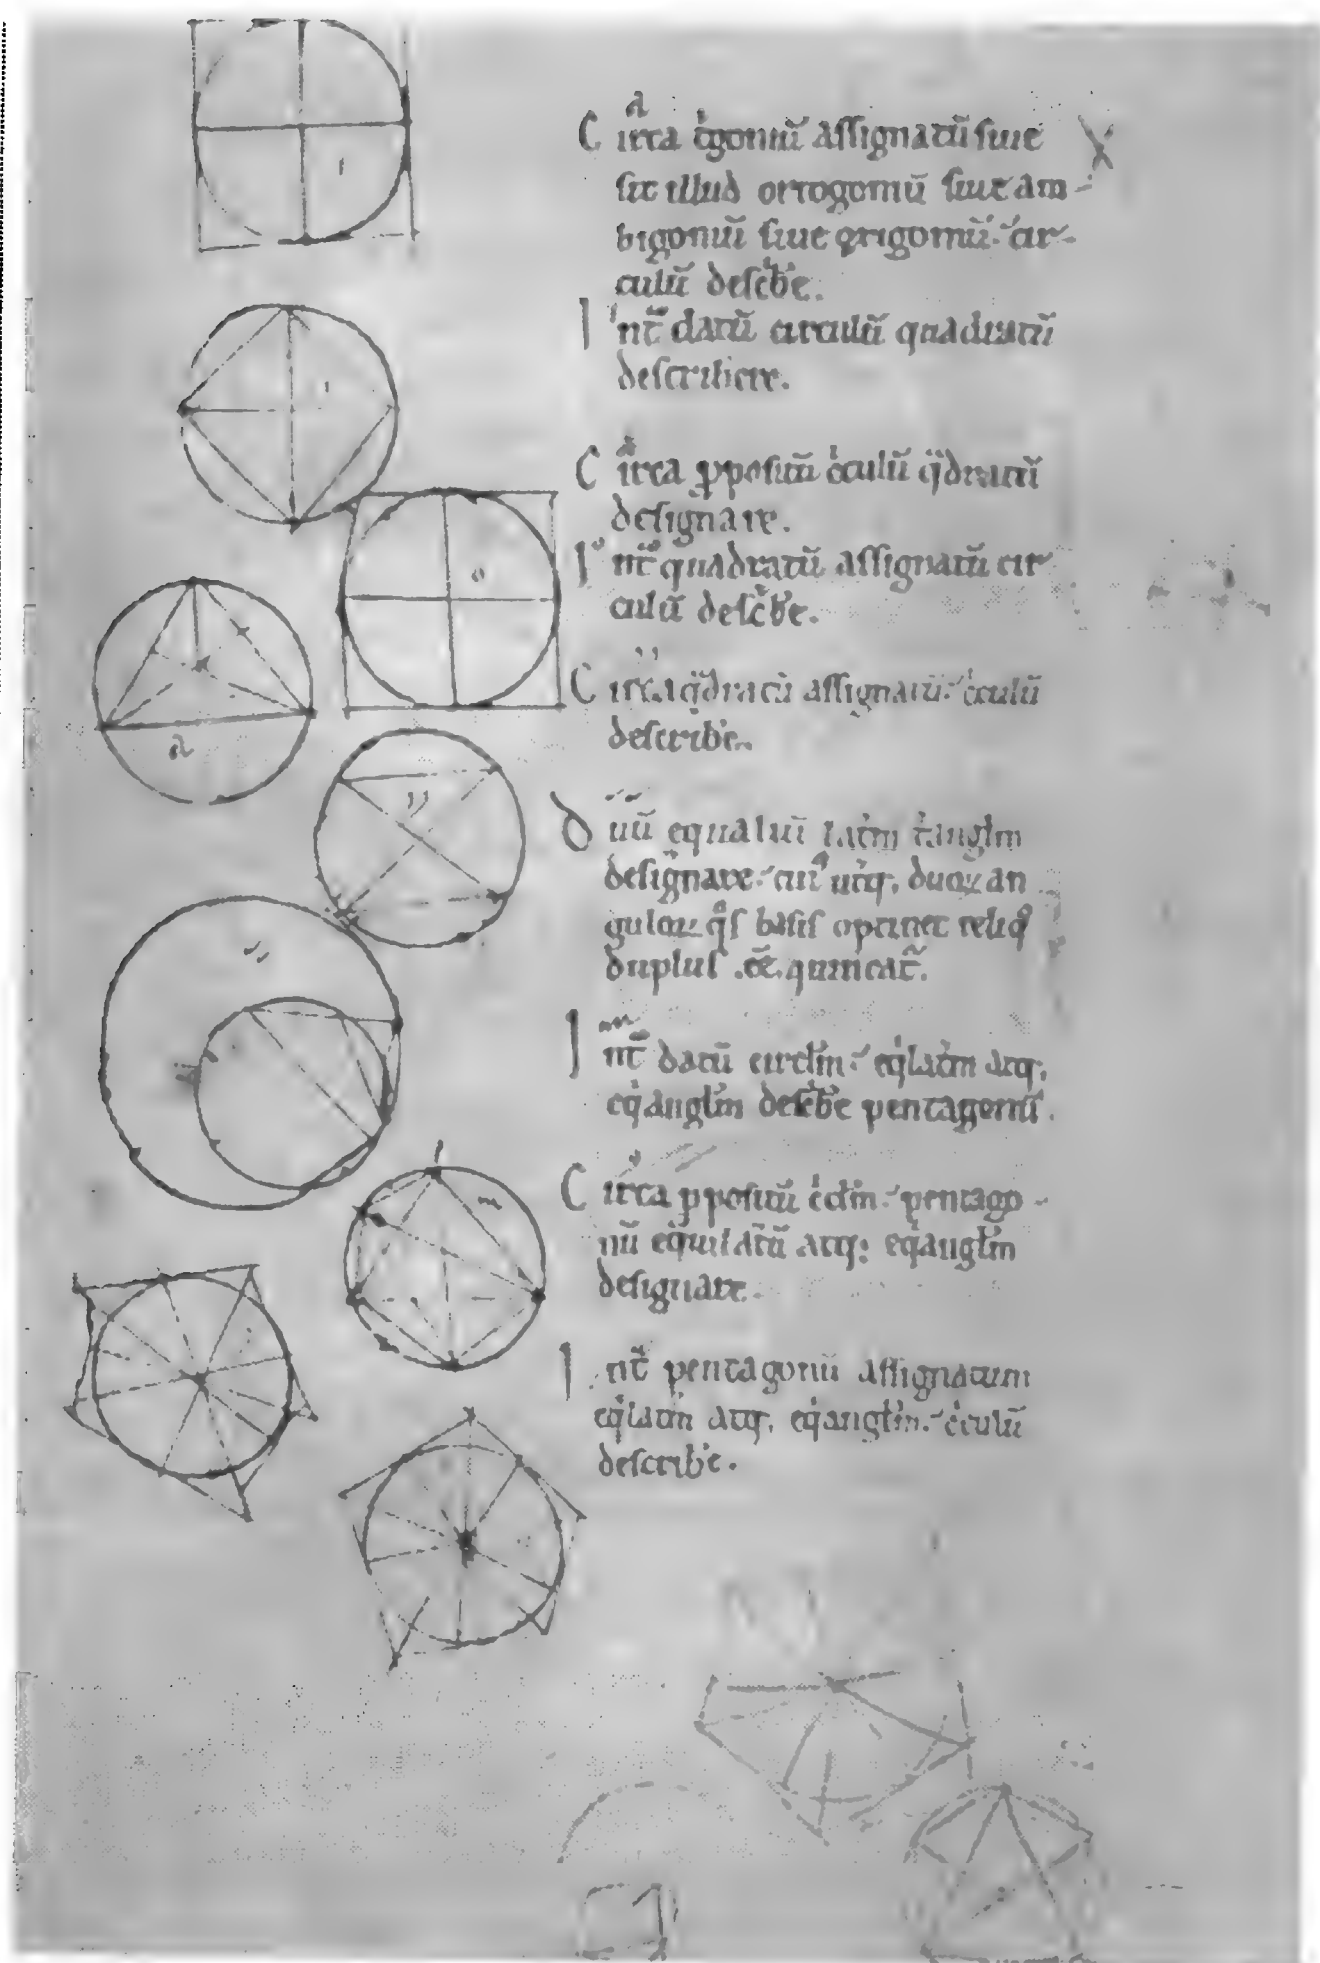 Circa t'goniũ assignatũ siue
sit illud ortogoniũ siue am-
bigoniũ siue origoniũ cir-
culũ desc'be.
Int̃ datũ circulũ quadratũ
describere.
Circa ppositũ c'culũ q̃dratũ
designare.
Int̃ quadratũ assignatũ cir
culũ desc'be.
Circa q̃dratũ assignatũ c'culũ
describe.
duũ equaliũ lat'm t'anglm
designare cui' ut'q, duoꝝ an
guloꝝ q°s basis optinet reliq°
duplus
Int̃ datũ circlm eq'lat'm atq,
eq'anglm desc'be pentagonũ.
Circa ppositũ c'clm pentago-
nũ eq'latũ atq; eq'anglm
designare.
Int̃ pentagonũ assignatum
eq'lat'm atq, eq'anglm c'culũ
describe.